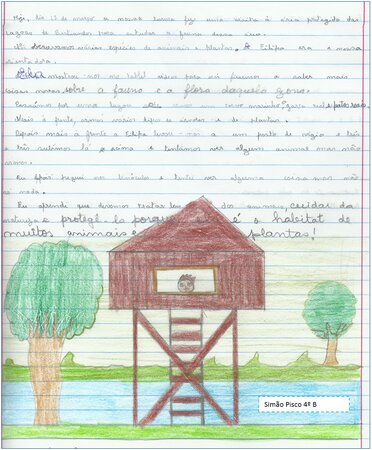 Hoje, dia 13 de março a nossa turma fez uma visita à área protegida das
Lagoas de Bertiandos para estudar a fauna dessa área.
Ali observámos várias espécies de animais e plantas. A Filipa era a nossa
orientadora.
Ela mostrou-nos no tablet vídeos para nós ficarmos a saber mais
coisas novas sobre a fauna e a flora daquela zona.
Passámos por uma lagoa e patos reais.
Mais à frente, vimos vários tipos de árvores e de plantas.
Depois mais à frente a Filipa levou-nos a um posto de vigia e três
a três subimos lá a cima e tentámos ver algum animal mas não
vimos.
Eu peguei nos binóculos e tentei ver alguma coisa mas não
vi nada.
Eu aprendi que devemos tratar bem dos animais, cuidar da
natureza e protegê-la porque é o habitat de
muitos animais e plantas!
Simão Pisco 4º B